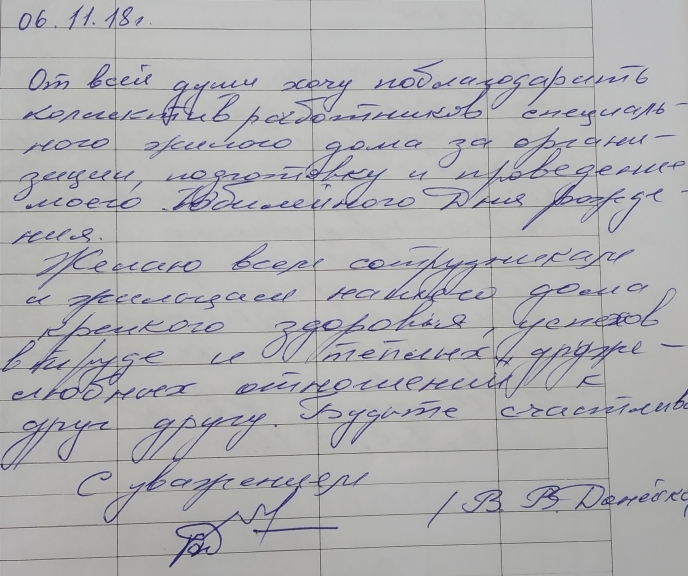 06.11.18г.
От всей души хочу поблагодарить
коллектив работников специаль-
ного жилого дома за органи-
зации, подготовку и проведение
моего Юбилейного Дня рожде-
ния.
Желаю всем сотрудникам
и жильцам нашего дома
крепкого здоровья, успехов
в труде и тёплых, друже-
любных отношений к
друг другу. Будьте счастливы
С уважением
/ В. В.